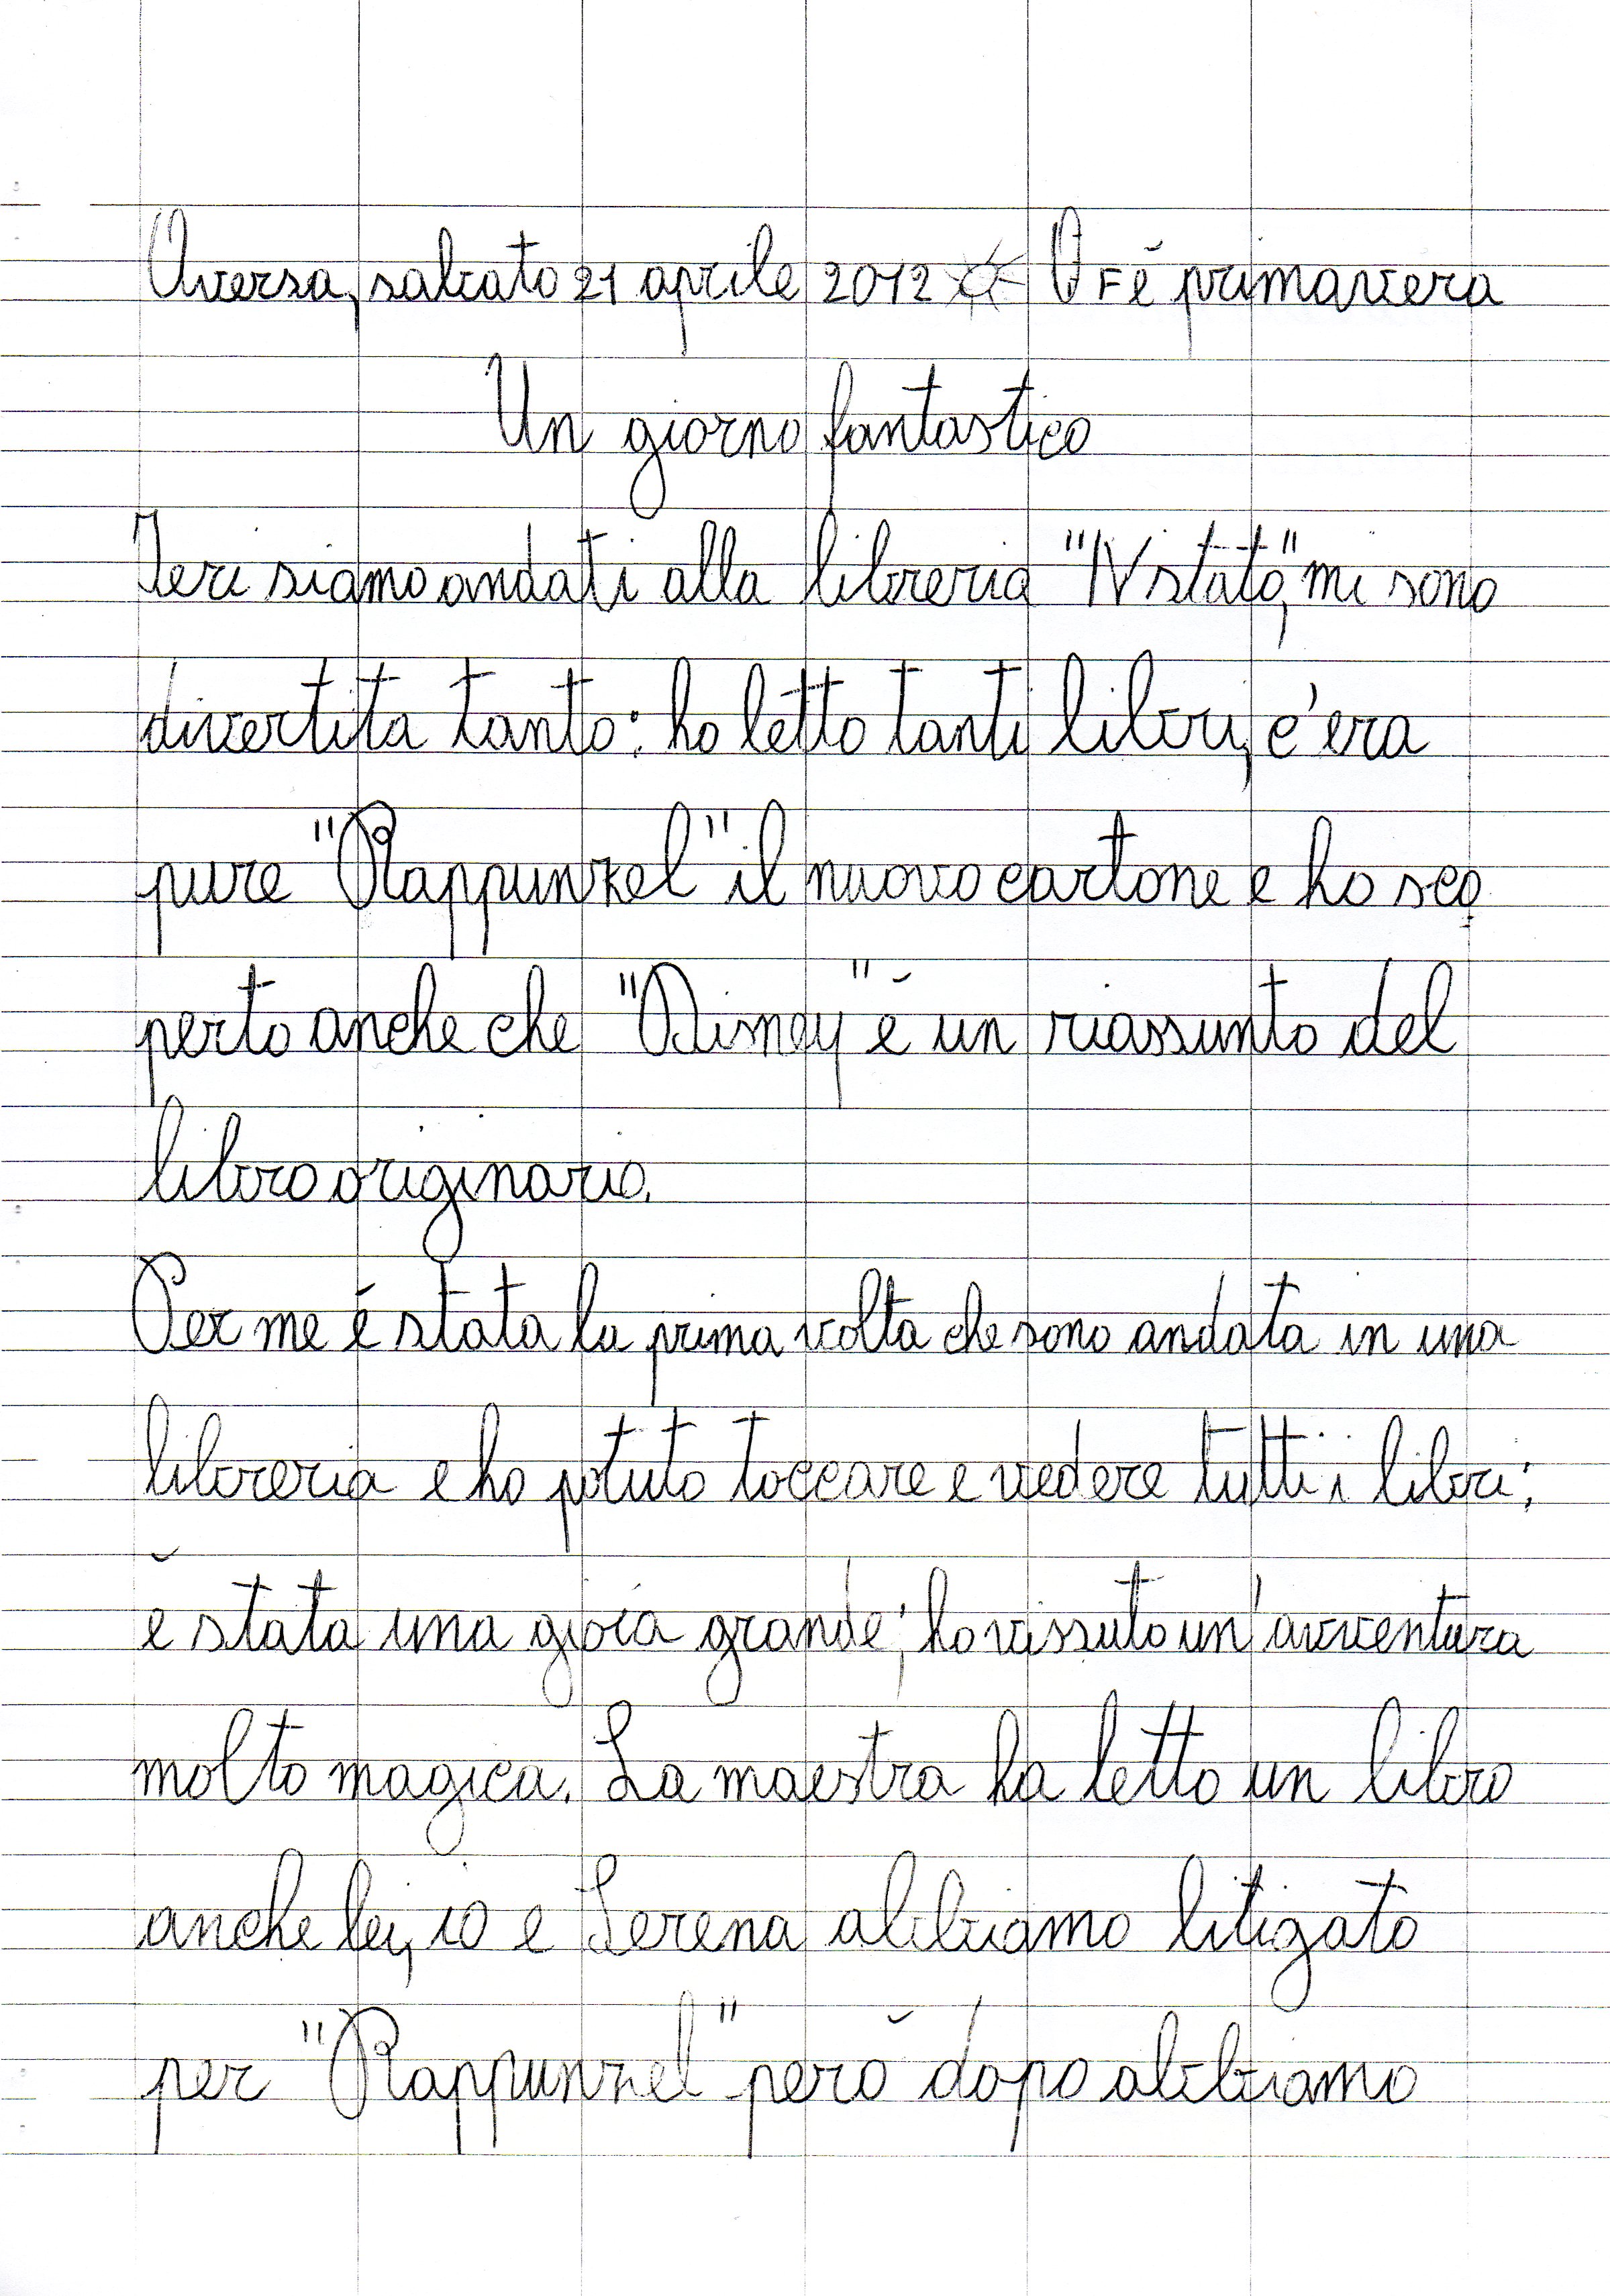 Aversa, sabato 21 aprile 2012 O F è primavera
Un giorno fantastico
Ieri siamo andati alla libreria "IV stato", mi sono
divertita tanto: ho letto tanti libri, c'era
pure "Rappunzel" il nuovo cartone e ho sco
perto anche che "Disney" è un riassunto del
libro originario.
Per me é stata la prima volta che sono andata in una
libreria e ho potuto toccare e vedere tutti i libri;
è stata una gioia grande; ho vissuto un'avventura
molto magica. La maestra ha letto un libro
anche lei, io e Serena abbiamo litigato
per "Rappunzel" però dopo abbiamo